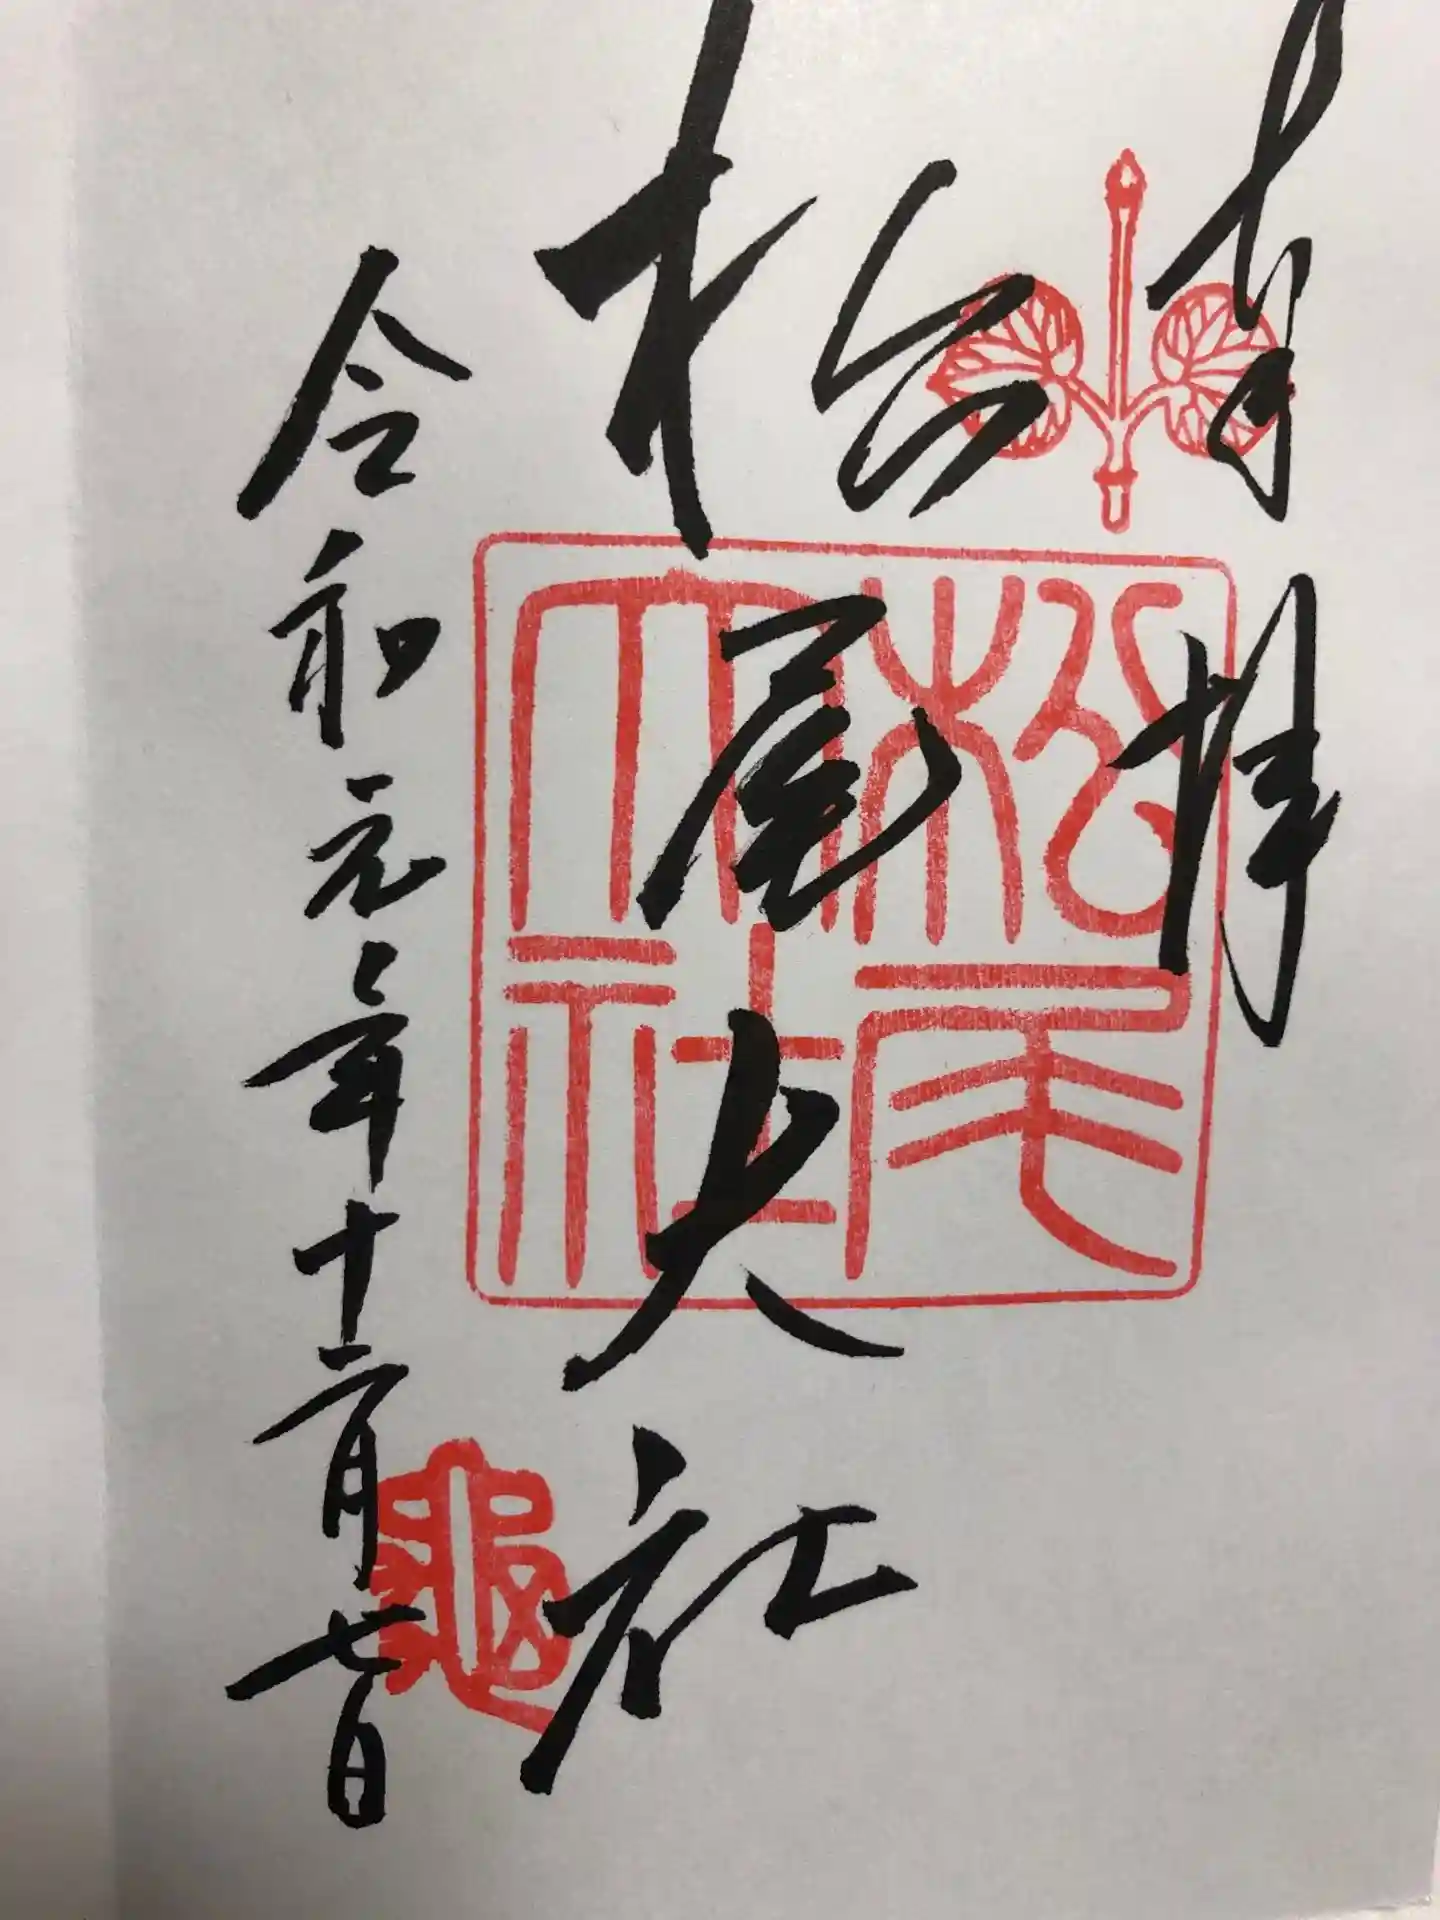 奉拝
松尾大社
令和元年十二月七日
松尾
大社
亀